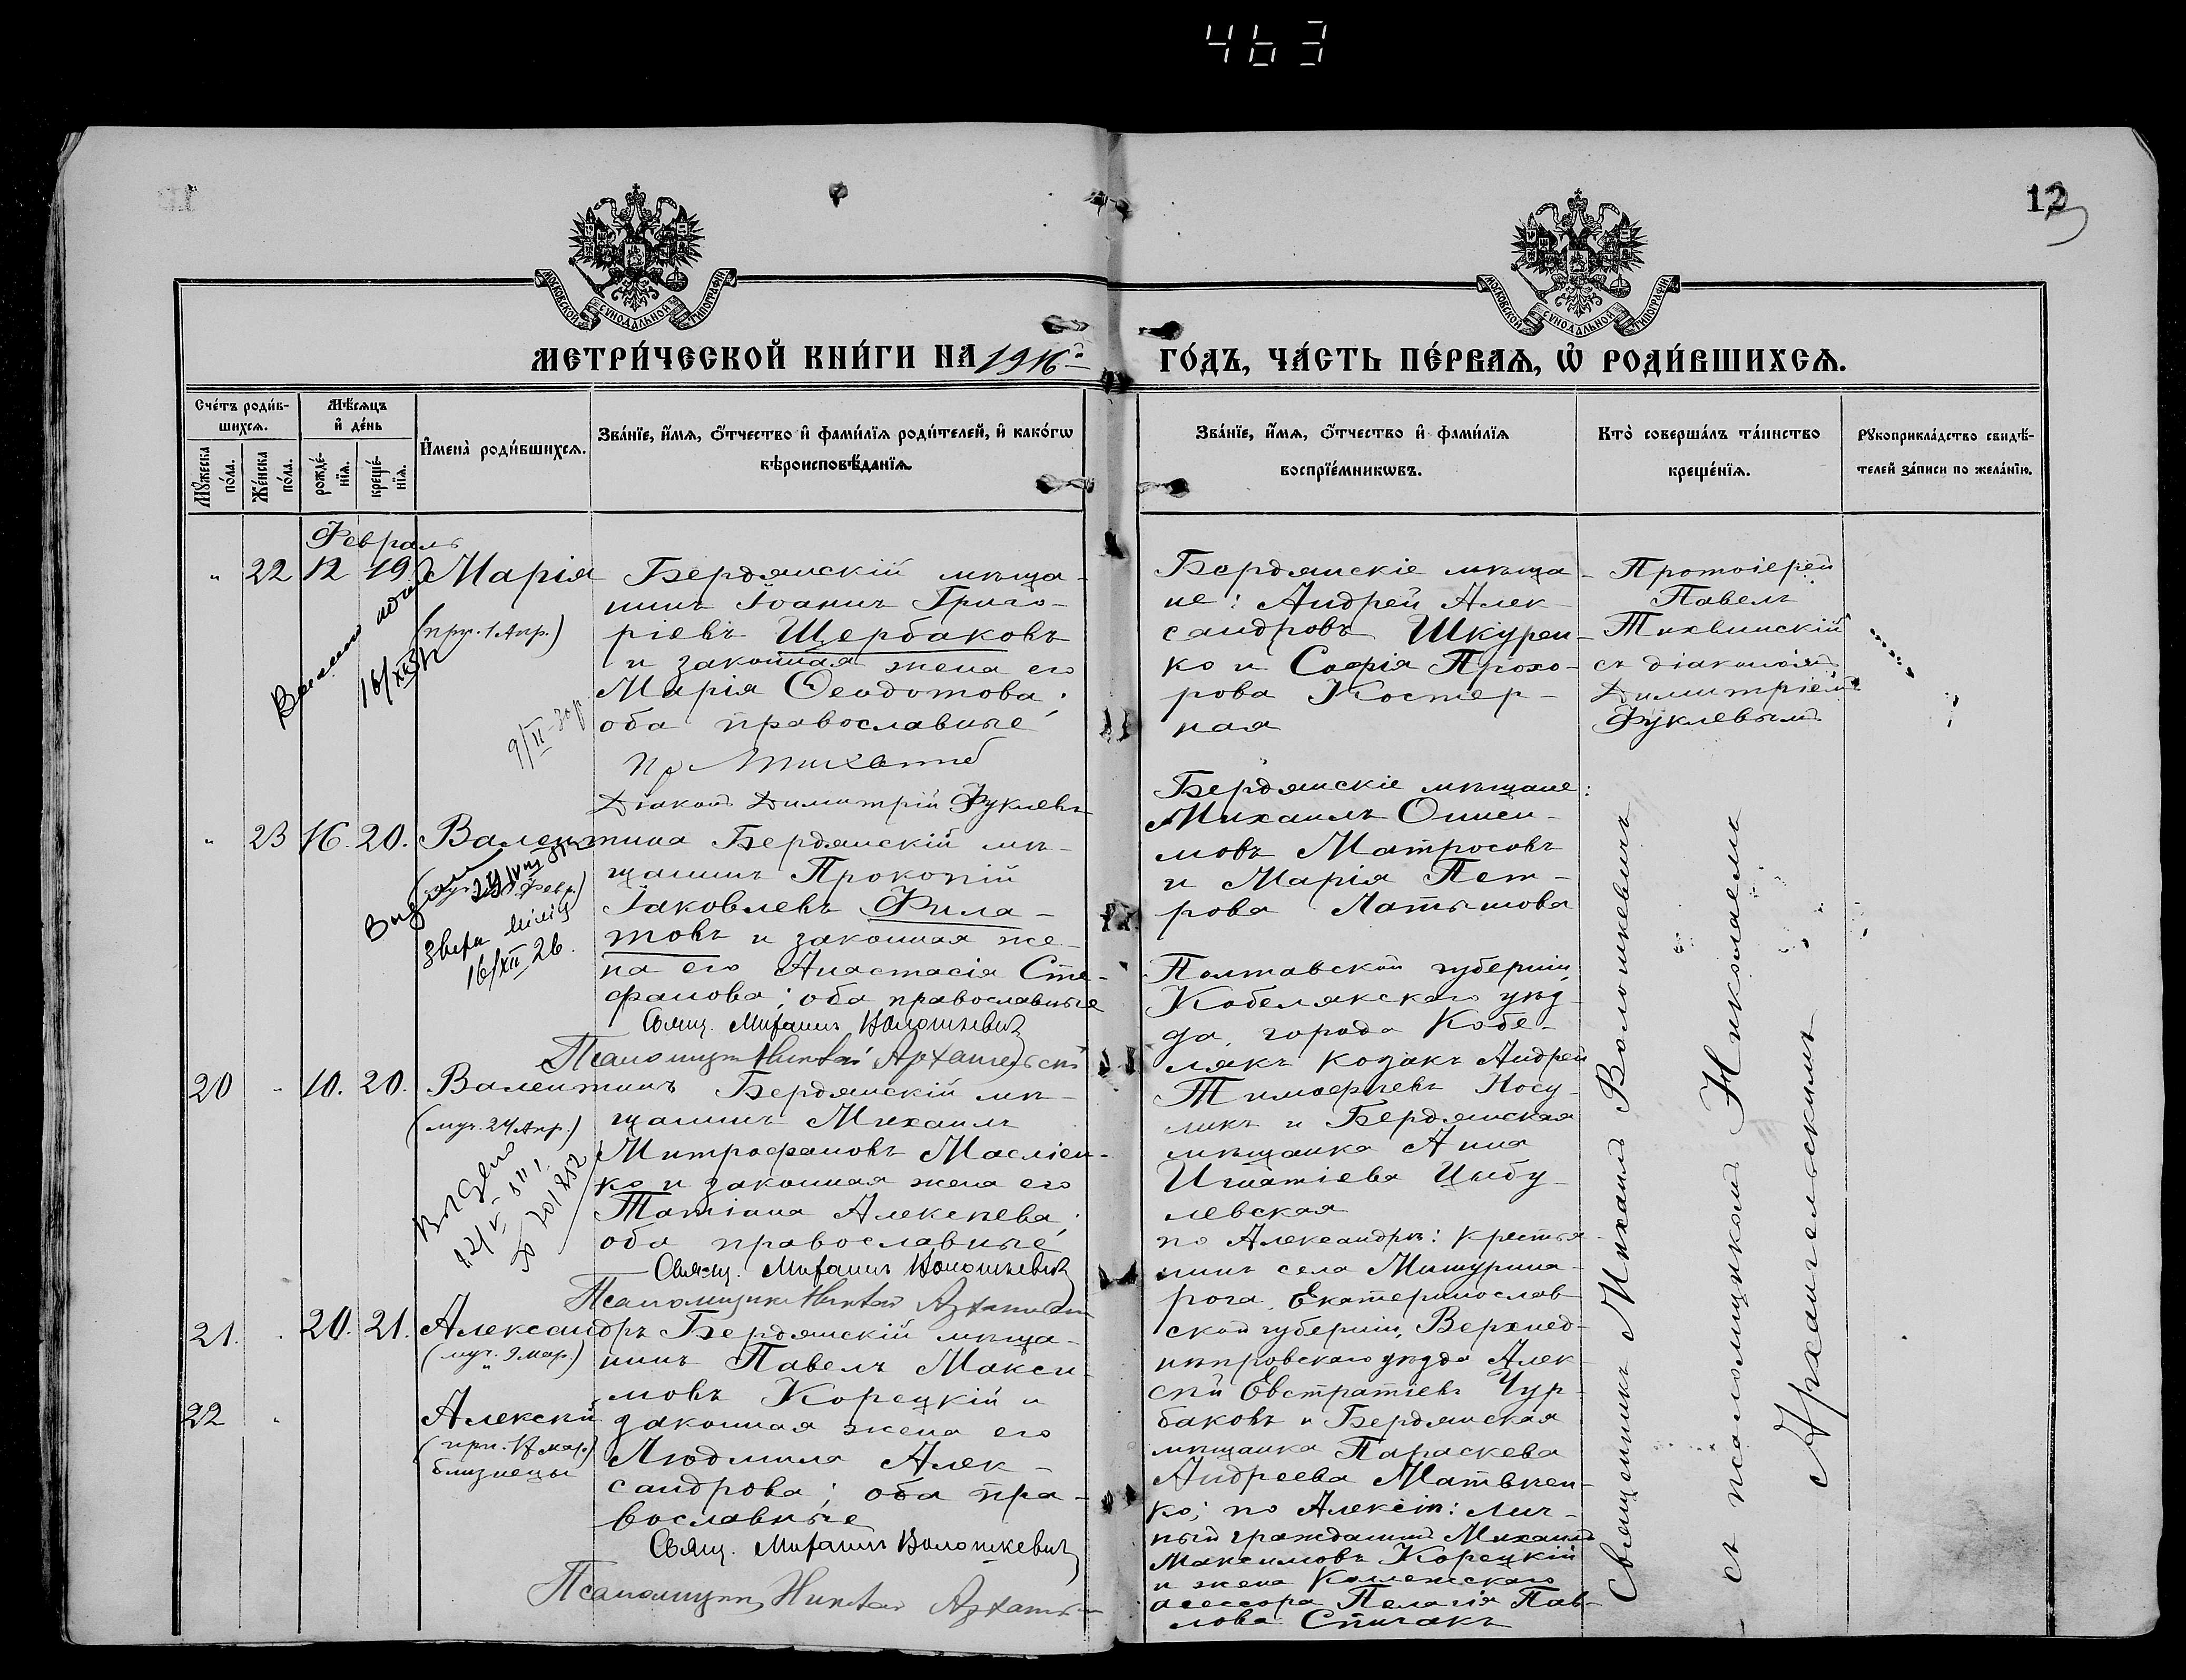 463
12
МОСКОВСКОЙ СѴНОДАЛЬНОЙ ТИПОГРАФІИ
МОСКОВСКОЙ СѴНОДАЛЬНОЙ ТИПОГРАФІИ
МЕТРИ́ЧЕСКОЙ КНИ́ГИ НА 1916 й
ГО́ДЪ, ЧА́СТЬ ПЕ́РВАѦ, Ѡ҆ РОДИ́ВШИХСѦ.
Сче́тъ роди́в-
шихсѧ.
Мѣ́сѧцъ
и҆ де́нь
Мꙋ́жеска
по́ла.
Же́нска
по́ла.
рожде́-
нїѧ.
креще́-
нїѧ.
И҆мена̀ роди́вшихсѧ.
Зва́нїе, и҆́мѧ, ѻ҆́тчество и҆ фамѝлїѧ роди́телей, и҆ како́гѡ
вѣроисповѣ́данїѧ.
Зва́нїе, и҆́мѧ, ѻ҆́тчество и҆ фамѝлїѧ
воспрїе́мникѡвъ.
Кто̀ соверша́лъ та́инство
креще́нїѧ.
Рꙋкоприкла́дство свидѣ́-
телей за́писи по жела́нїю.
Февраль
" 22 12 19 Марія
(прп. 1 Апр.)
Бердянскій мѣща-
нинъ Іоаннъ Григо-
ріевъ Щербаковъ
и законная жена его
Марія Ѳеодотова;
оба православные
Діаконъ Димитрій Фуклевъ
Бердянскіе мѣща-
не: Андрей Алек-
сандровъ Шкурен-
ко и Софія Прохо-
рова Костер-
ная
Протоіерей
Павелъ
Тихвинскій
съ діакономъ
Димитріемъ
Фуклевымъ
" 23 16. 20. Валентина
16/XII 26.
Бердянскій мѣ-
щанинъ Прокопій
Іаковлевъ Фила-
товъ и законная же-
на его Анастасія Сте-
фанова; оба православные
Свящ. Михаилъ Волошкевичъ
Псаломщик Николай Архангельскій
Бердянскіе мѣщане:
Михаилъ
мовъ Матросовъ
и Марія Пет-
рова Латышова
20 " 10. 20. Валентинъ
(муч. 24 Апр.)
Бердянскій мѣ-
щанинъ Михаилъ
Митрофановъ Масліен-
ко и законная жена его
Татіана Алексѣева;
оба православные
Свящ. Михаилъ Волошкевичъ
Псаломщик Николай
Полтавской губерніи,
Кобелякскаго уѣз-
да, города Кобе-
лякъ козакъ Андрей
Тимофѣевъ Носу-
ликъ и Бердянская
мѣщанка Анна
Игнатіева Цыбу-
левская
21. " 20. 21. Александръ
(муч. 9 мар.)
22 "
Алексѣй
(прп. 17 мар.)
близнецы
Бердянскій мѣща-
нинъ Павелъ Макси-
мовъ Корецкій и
законная жена его
Людмила Алек-
сандрова; оба пра-
вославные
Свящ. Михаилъ Волошкевичъ
Псаломщик Николай
по Александрѣ: крестья-
нинъ села Мишурина-
рога, Екатеринослав-
ской губерніи, Верхнед-
нѣпровскаго уѣзда Алек-
сѣй Евстратіевъ Чур-
баковъ и Бердянская
мѣщанка Параскева
Андреева Матвѣен-
ко; по Алексіѣ: лич-
ный гражданинъ Михаилъ
Максимовъ Корецкій
и жена Коллежскаго
асессора Пелагія Пав-
лова Спичакъ
Священникъ Михаилъ Волошкевичъ
съ псаломщикомъ Николаемъ
Архангельскимъ